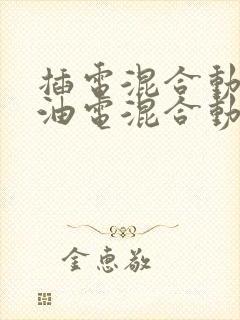 插電混合動
油電混合動
金惠敬